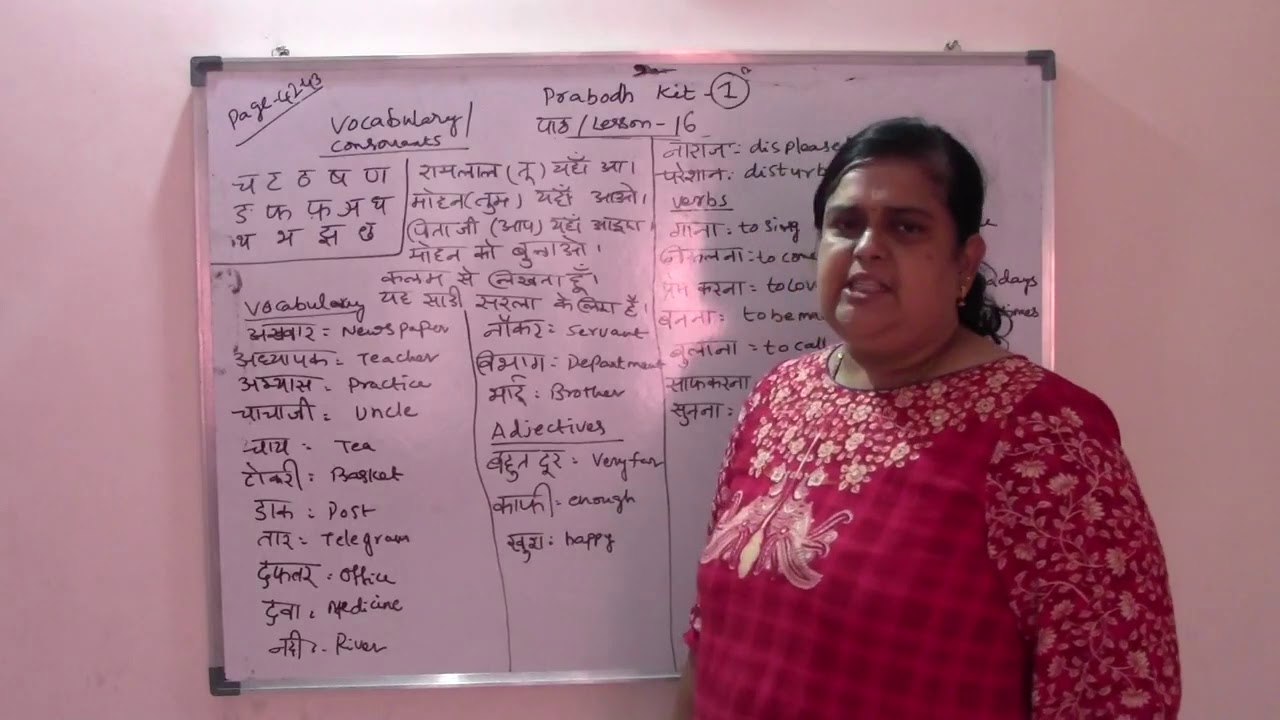 Page-42-43
Prabodh Kit-1
पाठ/Lesson-16
Vocabulary/
Consonants
च ट ठ ष ण
ड फ फ़ ञ थ
भ झ छ
रामलाल (तू) यहाँ आ।
मोहन (तुम) यहाँ आओ।
पिताजी (आप) यहाँ आइए।
मोहन को बुलाओ।
कलम से लिखता हूँ।
यह साड़ी सरला के लिए है।
Vocabulary
अखबार = Newspaper
अध्यापक = Teacher
अभ्यास = Practice
चाचाजी = Uncle
चाय = Tea
टोकरी = Basket
डाक = Post
तार = Telegram
दफतर = Office
दवा = Medicine
नदी = River
नौकर = Servant
विभाग = Department
भाई = Brother
Adjectives
बहुत दूर = Very far
काफी = enough
खुश = happy
नाराज = displease
परेशान = disturb
Verbs
गाना = to sing
निकलना = to come
प्रेम करना = to love
बनना = to be ma
बुलाना = to call
साफ करना =
सुनना =
days